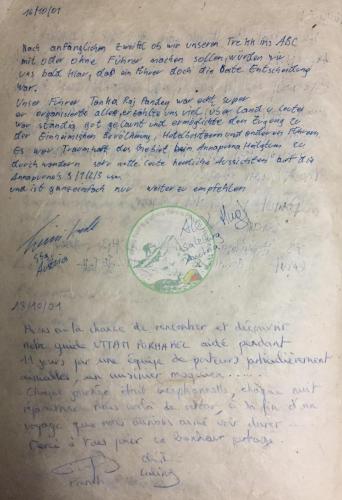 16/10/01
Nach anfänglichen Zweifel ob wir unseren Trekk ins ABC
mit oder ohne Führer machen sollen, wurden wir
uns bald klar, daß ein Führer doch die Beste Entscheidung
war.
Unser Führer Tanka Raj Pandey war echt super
er organisierte alles, erzählte uns viel über Land u. Leute
war ständig gut gelaunt und ermöglichte den Zugang zu
der Einheimischen Bevölkerung, Hotelbesitzern und anderen Führern
Es war Traumhaft das Gebiet beim Annapurna Heiligtum zu
durchwandern sehr nette Leute herrliche Aussichten auf die
Annapurnas S/1/2/3 usw
und ist ganz einfach nur weiter zu empfehlen
Austria
Austria
13/10/01
Avons eu la chance de rencontrer et découvrir
notre guide UTTAM aidé pendant
11 jours par une équipe de porteurs particulièrement
aimables, un cuisinier magicien .....
Chaque journée était exceptionnelle, chaque nuit
voyage que nous aurions aimé voir durer ....
Merci à tous pour ce bonheur partagé.
French